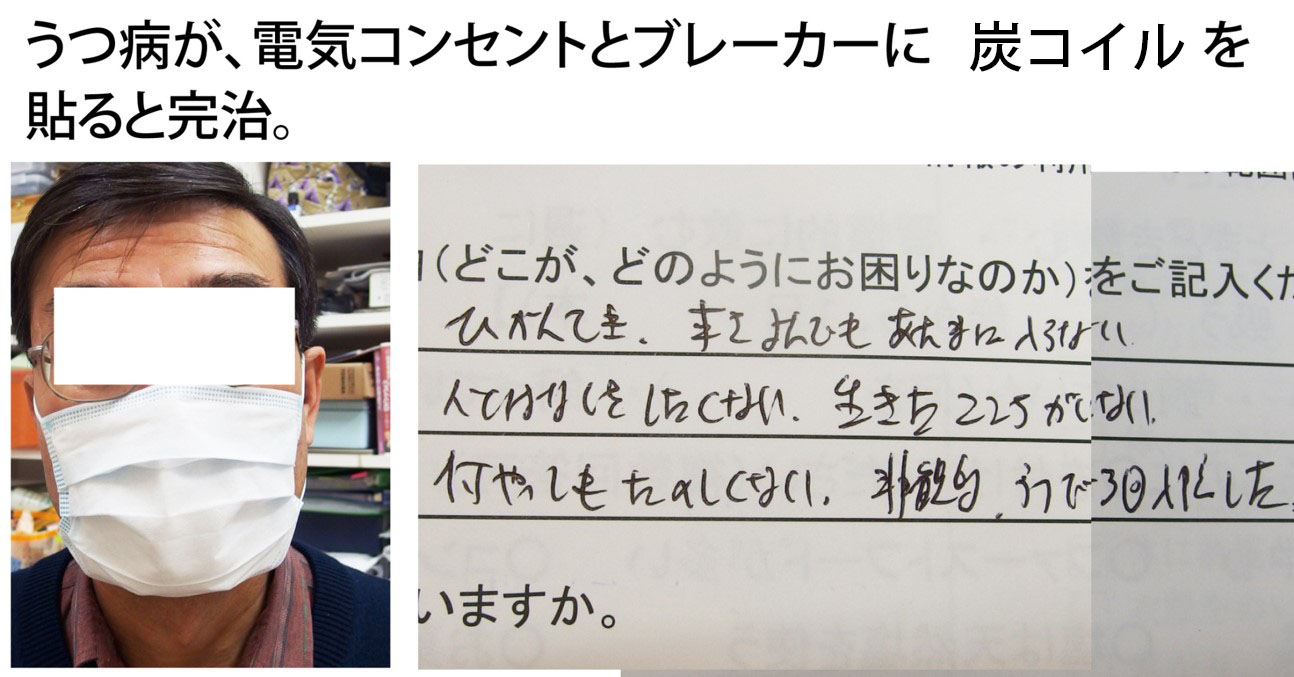 うつ病が、電気コンセントとブレーカーに 炭コイル を
貼ると完治。
(どこが、どのようにお困りなのか)をご記入くだ
ひかんてき. 本をよんでも あたまに入らない.
人てはなしをしたくない. 生きた ここちがしない.
何やってもたのしくない. 非観的. うつで3回入院した.
いますか。